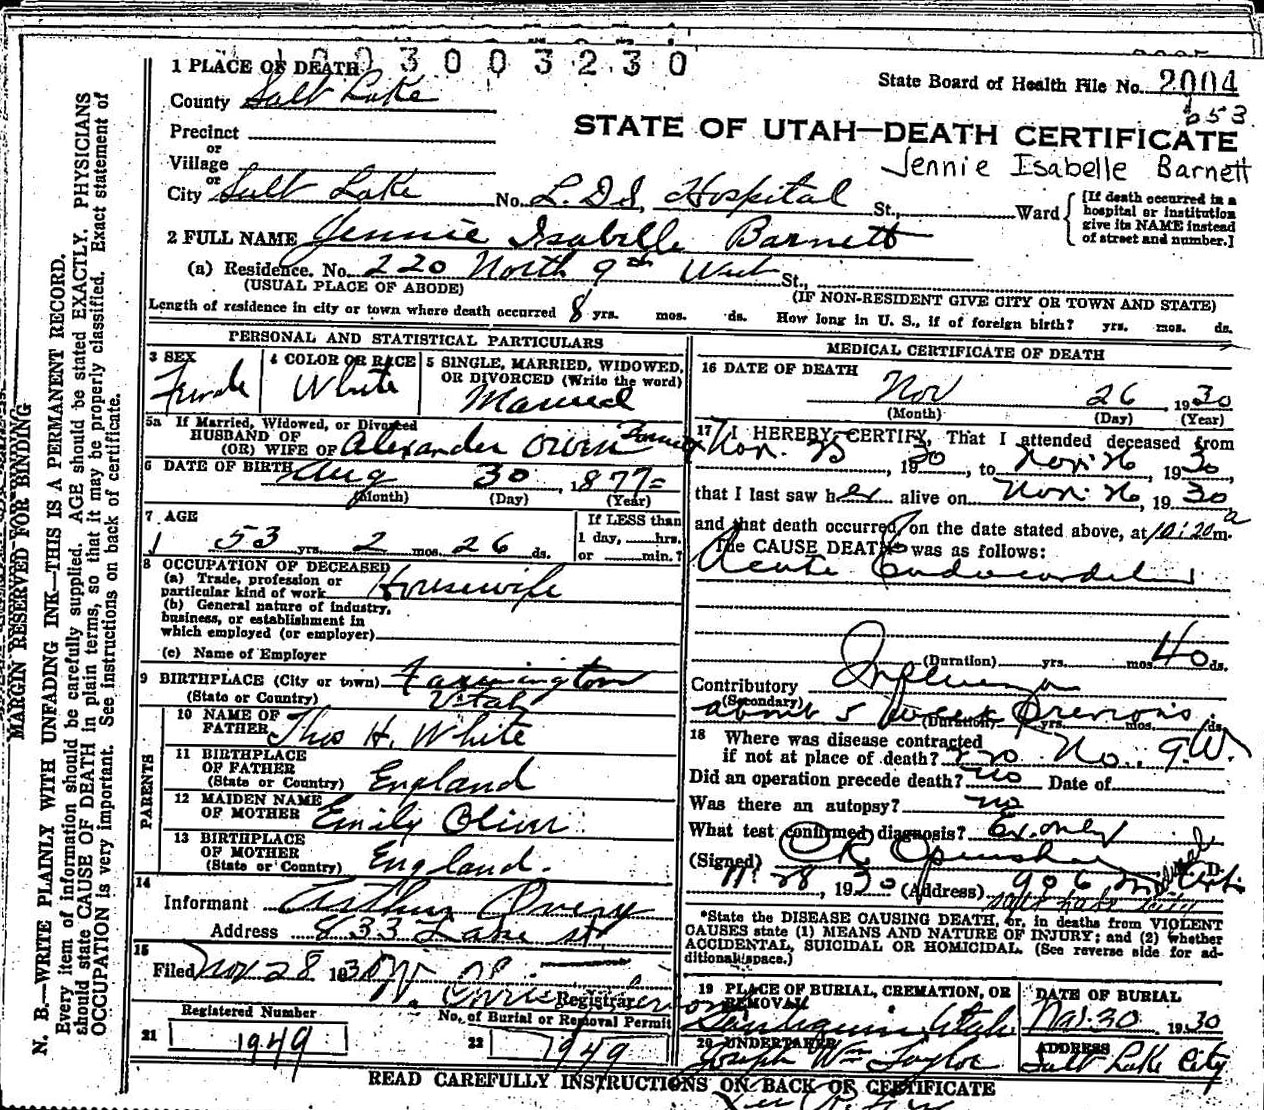 1003003230
1 PLACE OF DEATH
State Board of Health File No. 2004
653
County Salt Lake
STATE OF UTAH—DEATH CERTIFICATE
Precinct
or
Village
Jennie Isabelle Barnett
or
City Salt Lake No. L.D.S. Hospital St., Ward
[If death occurred in a
hospital or institution
give its NAME instead
of street and number.]
2 FULL NAME Jennie Isabelle Barnett
(a) Residence. No. 220 North 9th West St.,
(USUAL PLACE OF ABODE) (IF NON-RESIDENT GIVE CITY OR TOWN AND STATE)
Length of residence in city or town where death occurred 8 yrs. mos. ds. How long in U. S., if of foreign birth? yrs. mos. ds.
PERSONAL AND STATISTICAL PARTICULARS
3 SEX
Female
4 COLOR OR RACE
White
5 SINGLE, MARRIED, WIDOWED,
OR DIVORCED (Write the word)
Married
5a If Married, Widowed, or Divorced
HUSBAND OF
(OR) WIFE OF Alexander Owen
6 DATE OF BIRTH Aug 30, 1877
(Month) (Day) (Year)
7 AGE
53 yrs. 2 mos. 26 ds.
If LESS than
1 day, hrs.
or min.?
8 OCCUPATION OF DECEASED
(a) Trade, profession or
particular kind of work Housewife
(b) General nature of industry,
business, or establishment in
which employed (or employer)
(c) Name of Employer
9 BIRTHPLACE (City or town) Farmington
(State or Country) Utah
PARENTS
10 NAME OF
FATHER Thos H. White
11 BIRTHPLACE
OF FATHER
(State or Country) England
12 MAIDEN NAME
OF MOTHER Emily Oliver
13 BIRTHPLACE
OF MOTHER
(State or Country) England.
14
Informant Arthur Avery
Address 833 Lake St
15
Filed Nov 28 1930
Registrar
Registered Number
21 1949
No. of Burial or Removal Permit
22 1949
MEDICAL CERTIFICATE OF DEATH
16 DATE OF DEATH
Nov 26, 1930
(Month) (Day) (Year)
17 I HEREBY CERTIFY, That I attended deceased from
Nov. 25, 1930, to Nov. 26, 1930,
that I last saw her alive on Nov. 26, 1930
and that death occurred, on the date stated above, at 10:20 a m.
The CAUSE DEATH* was as follows:
Acute Endocarditis
(Duration) yrs. mos. 40 ds.
Contributory Influenza
(Secondary)
about 5 weeks previous
(Duration) yrs. mos. ds.
18 Where was disease contracted
if not at place of death? 220 No. 9.W.
Did an operation precede death? no Date of
Was there an autopsy? no
What test confirmed diagnosis? Ex. only
(Signed) O R Openshaw M. D.
11-28, 1930 (Address) 906 Med Arts
Salt Lake City
*State the DISEASE CAUSING DEATH, or, in deaths from VIOLENT
CAUSES state (1) MEANS AND NATURE OF INJURY; and (2) whether
ACCIDENTAL, SUICIDAL OR HOMICIDAL. (See reverse side for ad-
ditional space.)
19 PLACE OF BURIAL, CREMATION, OR
REMOVAL
Santaquin, Utah
DATE OF BURIAL
Nov. 30 1930
20 UNDERTAKER
Joseph Wm Taylor
ADDRESS
Salt Lake City
READ CAREFULLY INSTRUCTIONS ON BACK OF CERTIFICATE
MARGIN RESERVED FOR BINDING
N. B.—WRITE PLAINLY WITH UNFADING INK—THIS IS A PERMANENT RECORD.
Every item of information should be carefully supplied. AGE should be stated EXACTLY. PHYSICIANS
should state CAUSE OF DEATH in plain terms, so that it may be properly classified. Exact statement of
OCCUPATION is very important. See instructions on back of certificate.